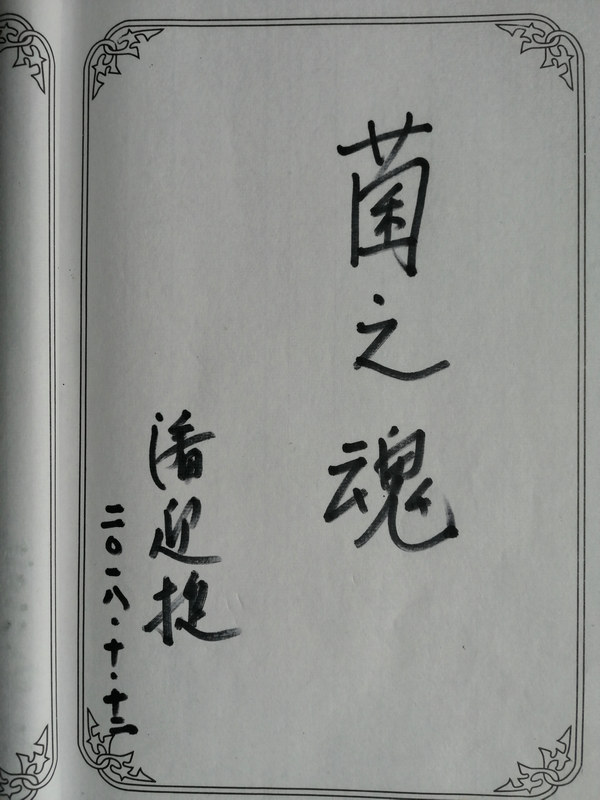 菌之魂
潘迎捷
二〇一八·十·十二